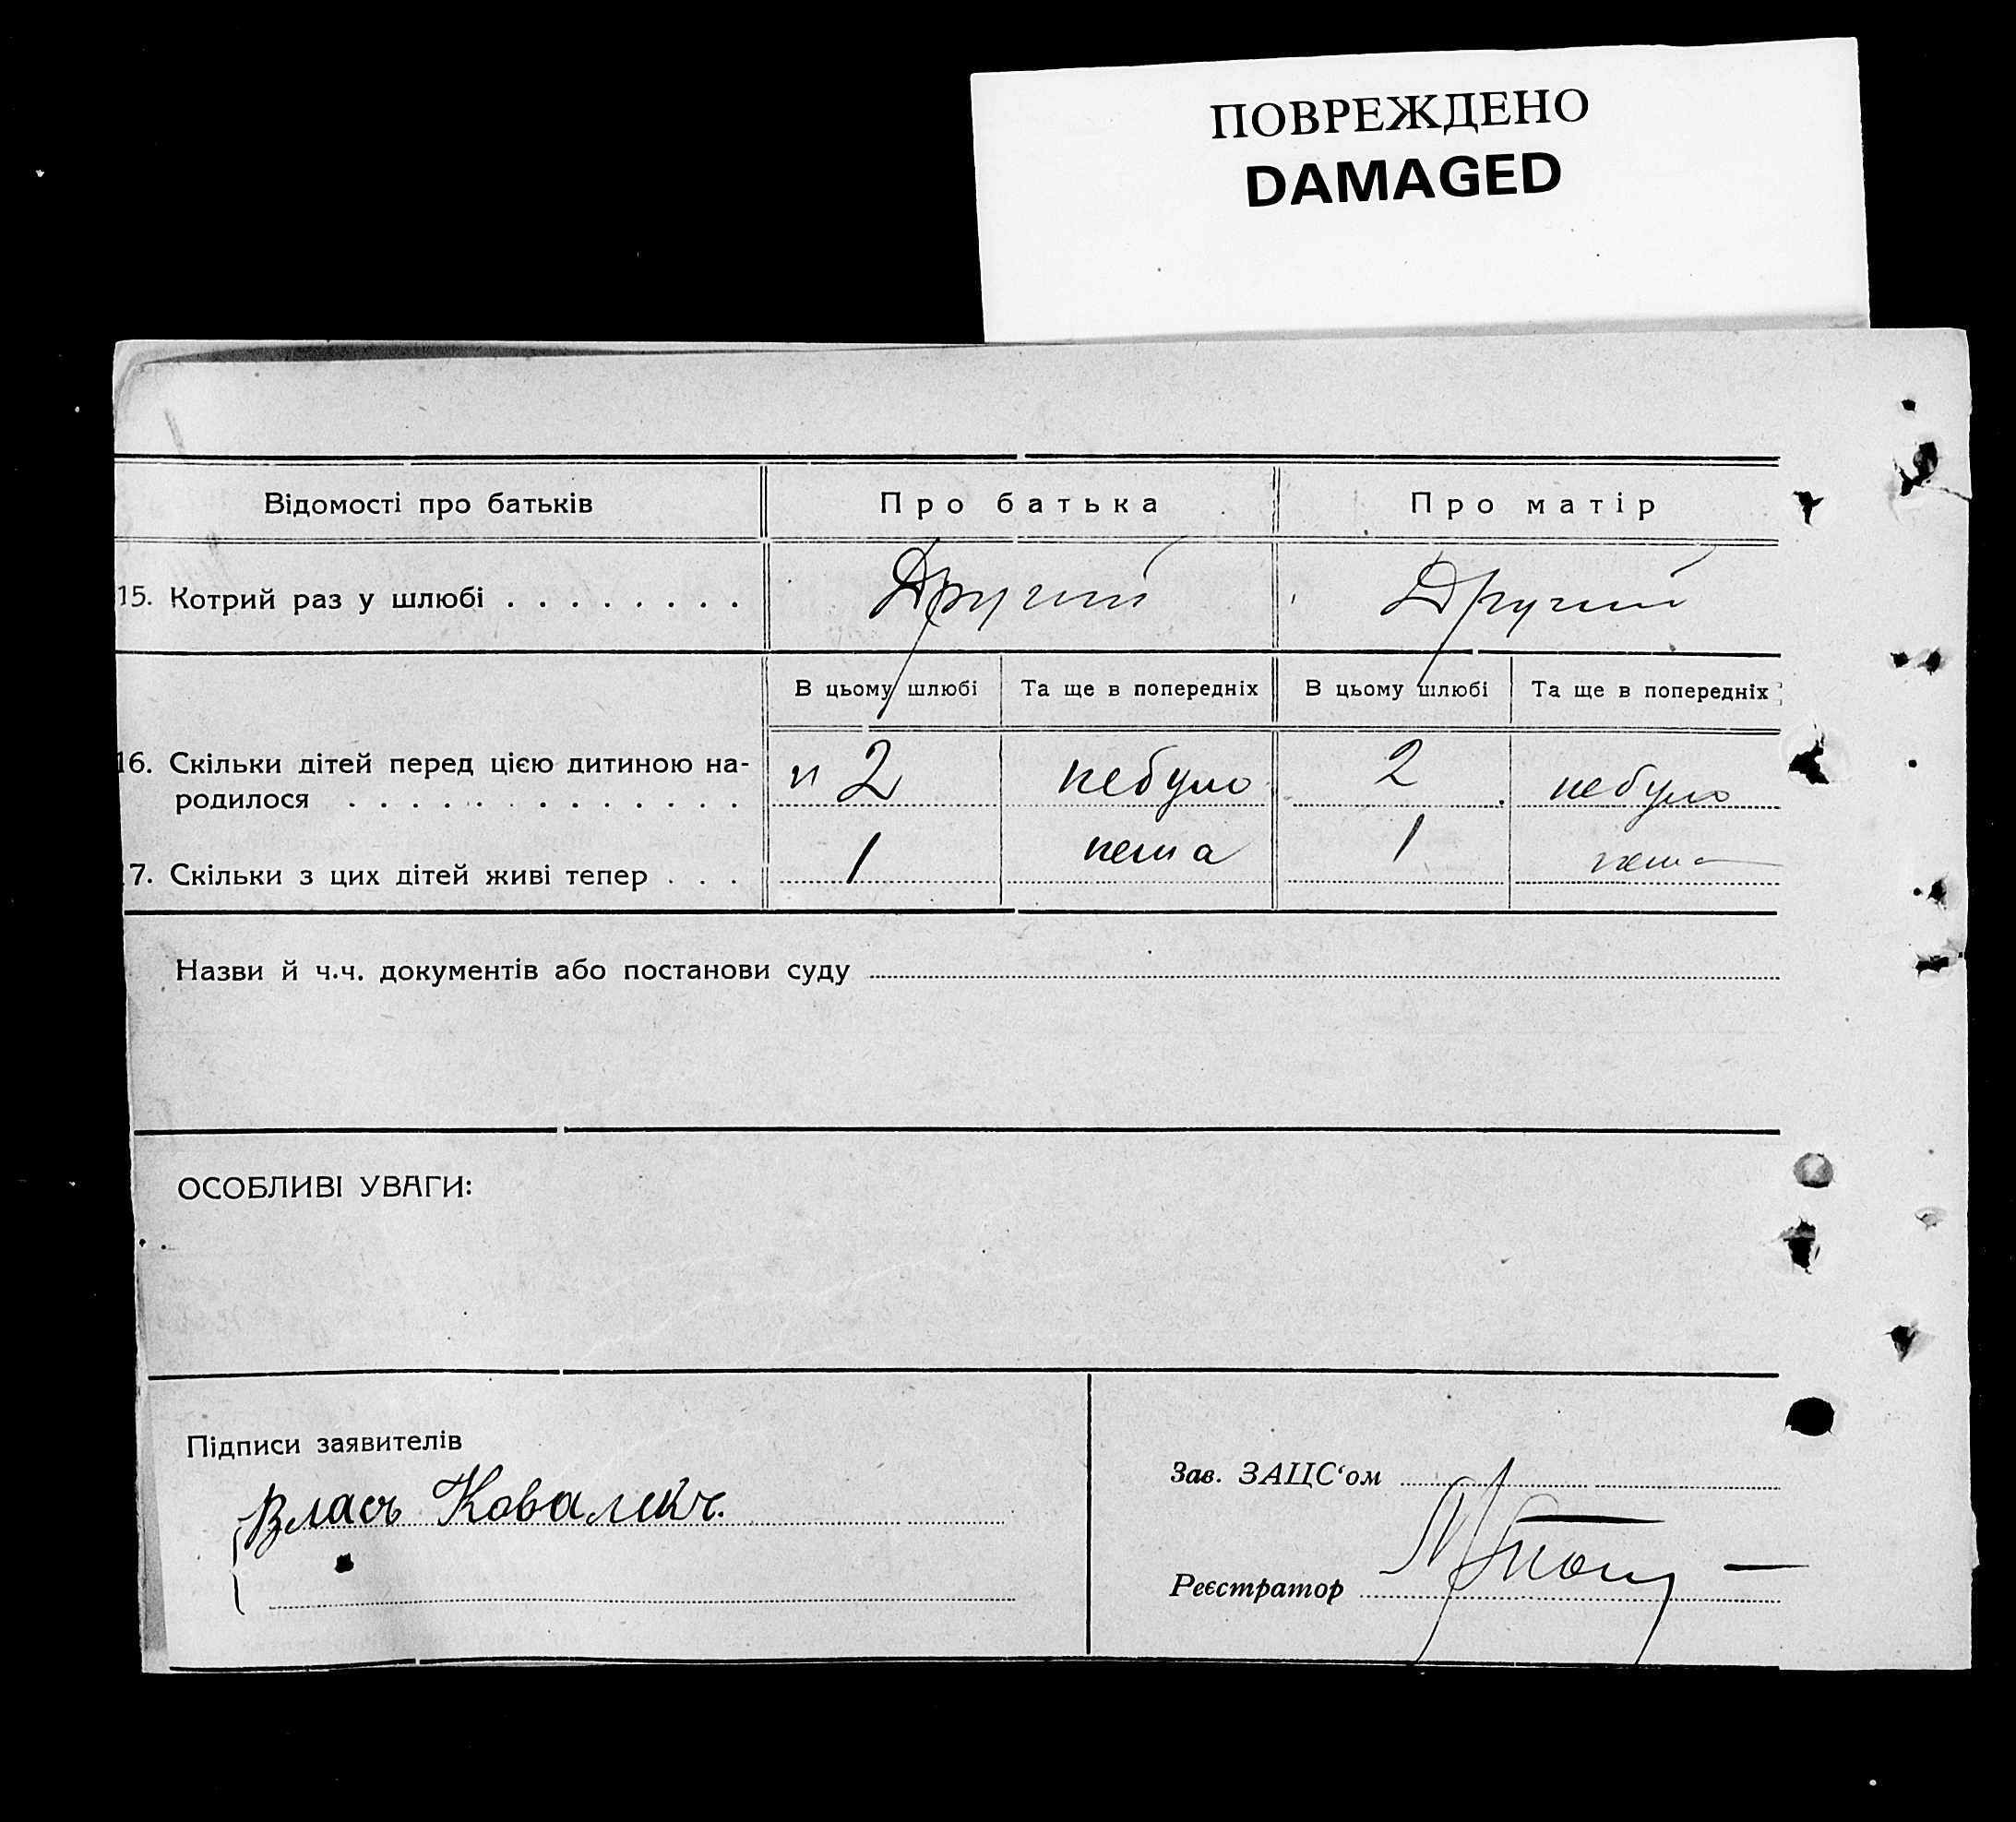 ПОВРЕЖДЕНО
DAMAGED
Відомості про батьків Про батька Про матір
15. Котрий раз у шлюбі . . . . . . . . Другий Другий
В цьому шлюбі Та ще в попередніх В цьому шлюбі Та ще в попередніх
16. Скільки дітей перед цією дитиною на-
родилося . . . . . . . . . . . . . 2 небуло 2 небуло
7. Скільки з цих дітей живі тепер . . . 1 нема 1 нема
Назви й ч.ч. документів або постанови суду
ОСОБЛИВІ УВАГИ:
Підписи заявителів
Зав. ЗАЦС'ом
Власъ
Реєстратор